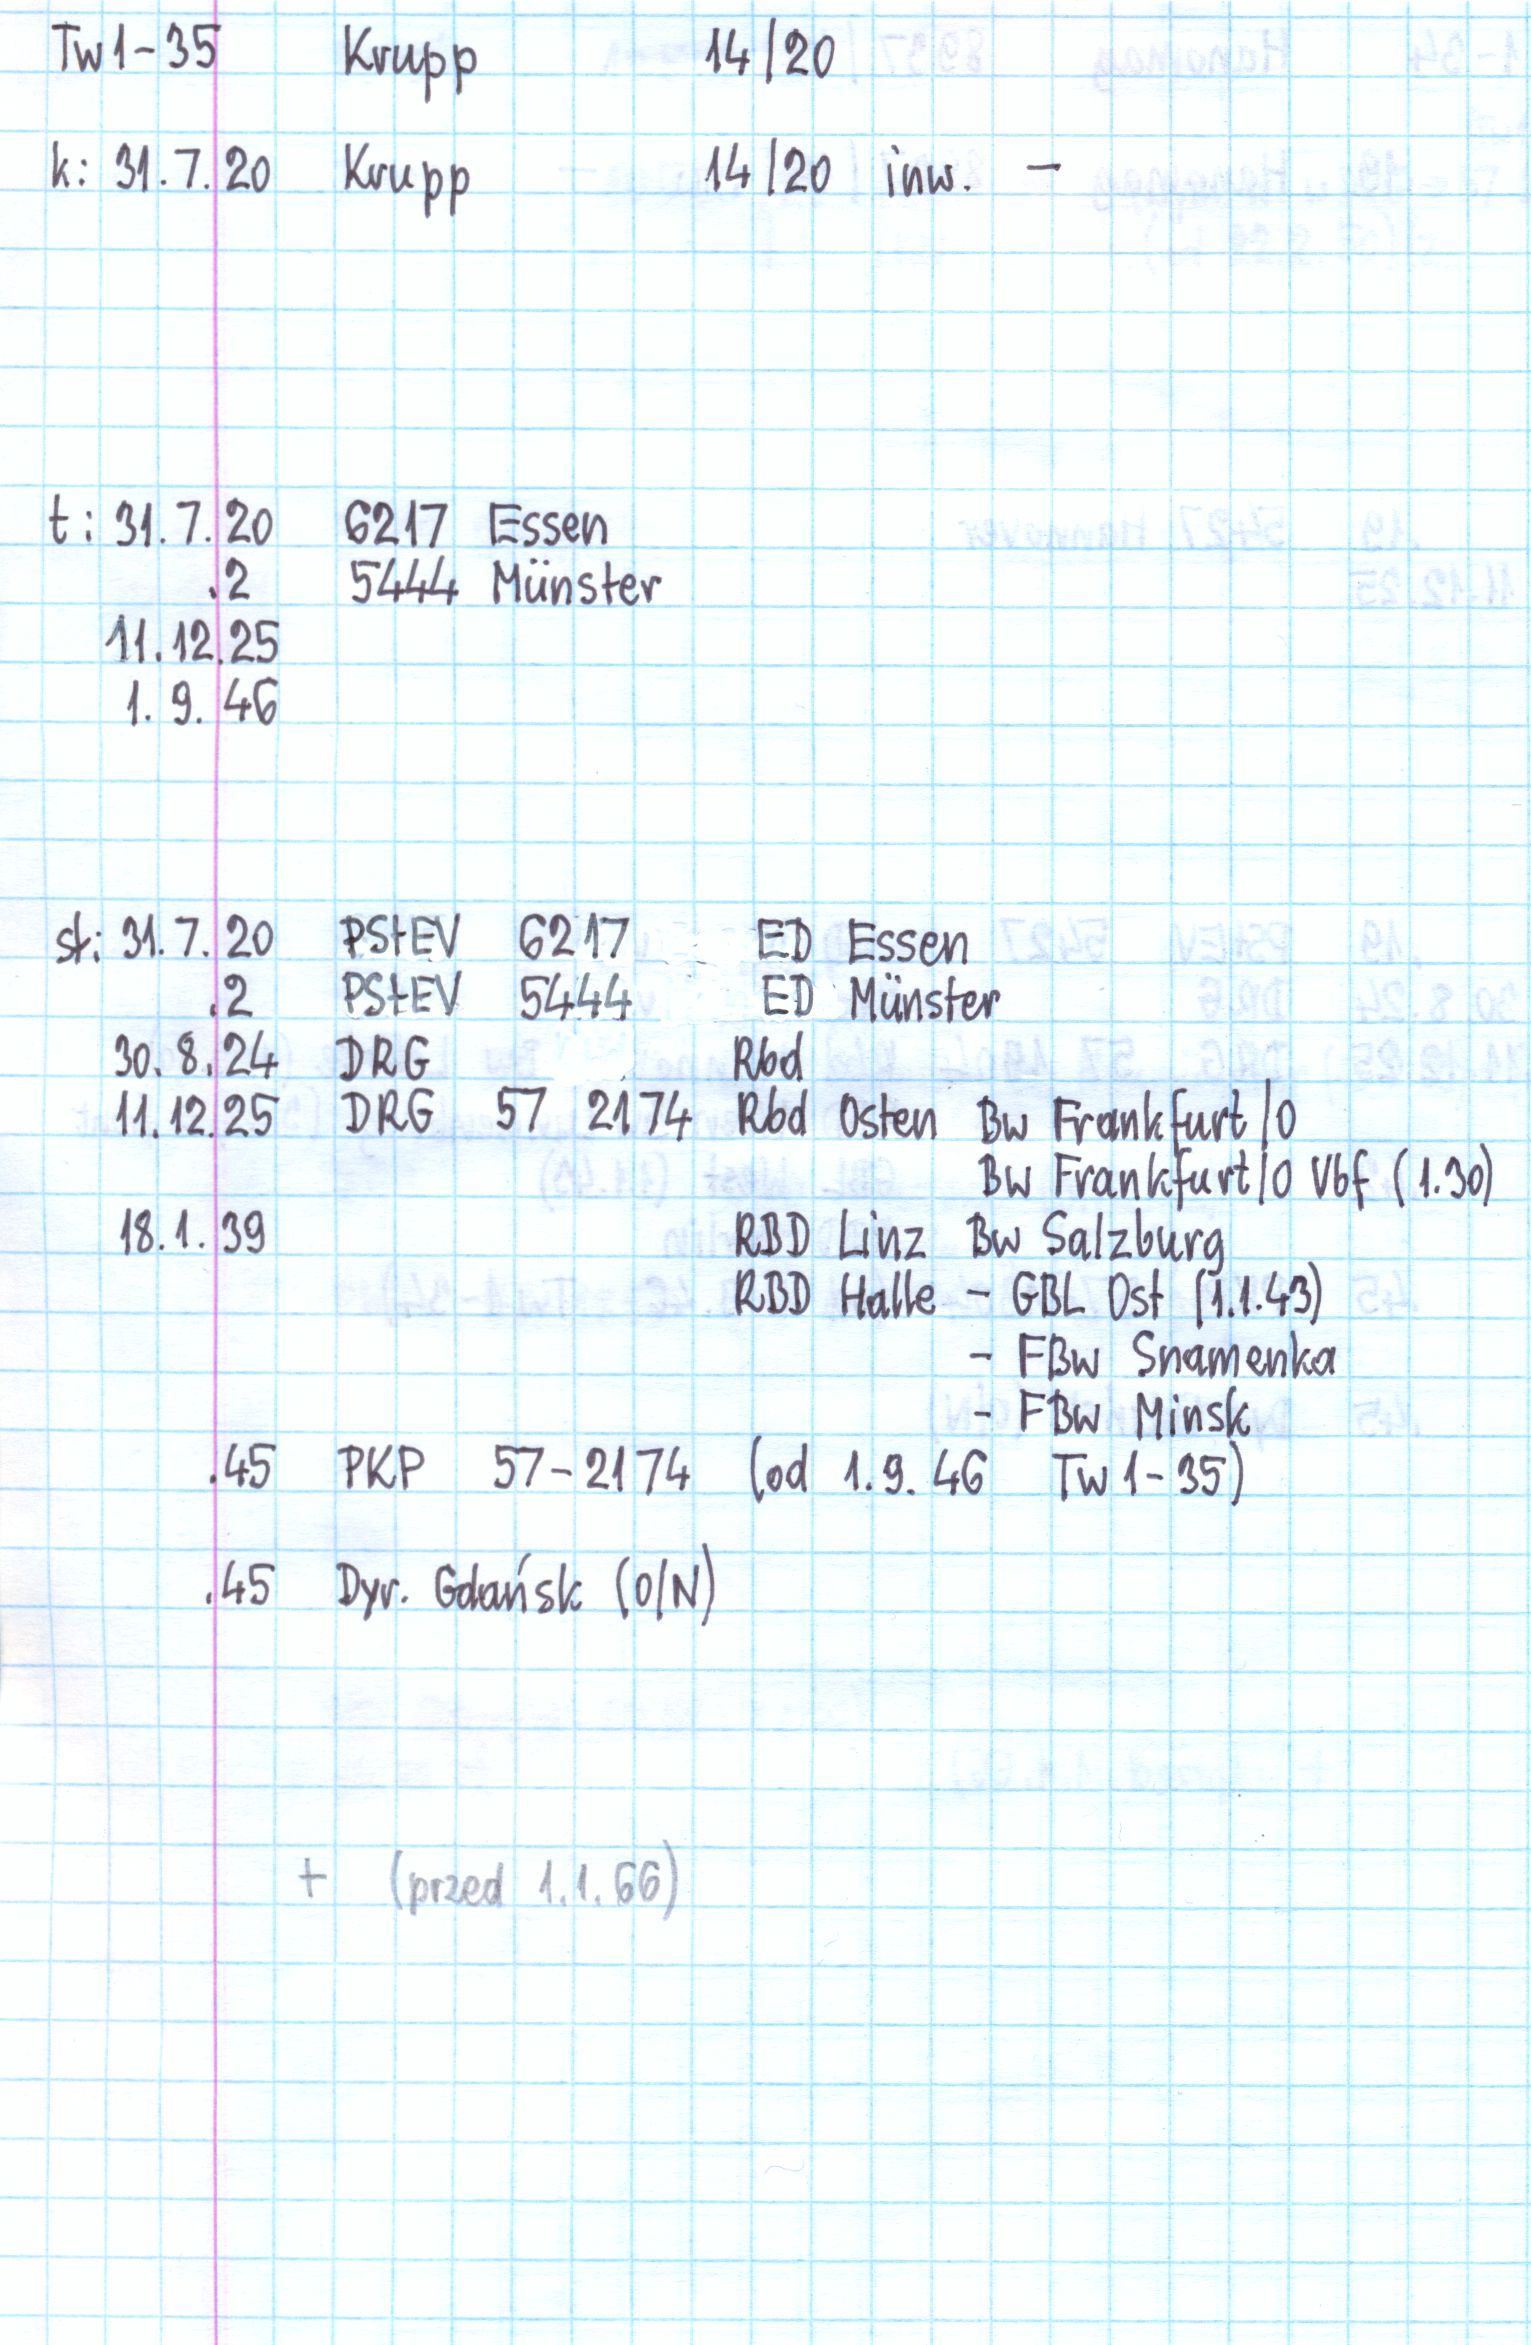 Tw1-35 Krupp 14/20
k: 31.7.20 Krupp 14/20 inw. -
t: 31.7.20 6217 Essen
.2 5444 Münster
11.12.25
1.9.46
st: 31.7.20 PStEV 6217 ED Essen
.2 PStEV 5444 ED Münster
30.8.24 DRG Rbd
11.12.25 DRG 57 2174 Rbd Osten Bw Frankfurt/O
Bw Frankfurt/O Vbf (1.30)
18.1.39 RBD Linz Bw Salzburg
RBD Halle - GBL Ost (1.1.43)
- FBw Snamenka
- FBw Minsk
.45 PKP 57-2174 (od 1.9.46 Tw1-35)
.45 Dyr. Gdańsk (O/N)
+ (przed 1.1.66)